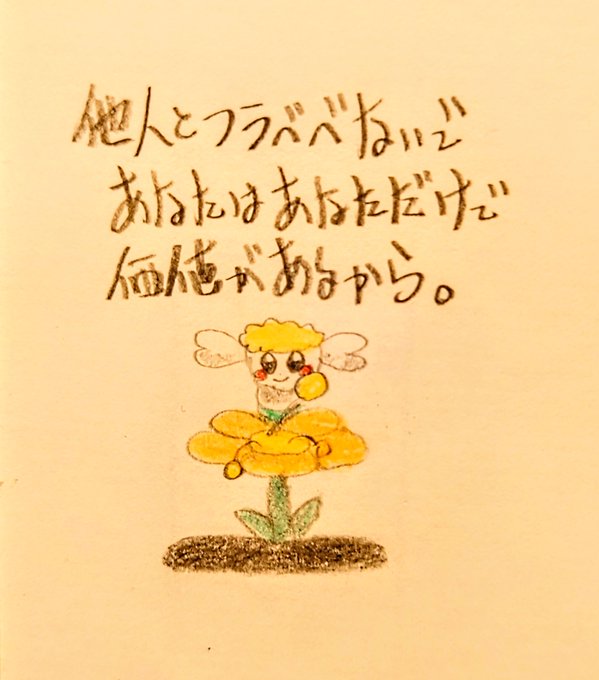 他人とフラベベないで
あなたはあなただけで
価値があるから。